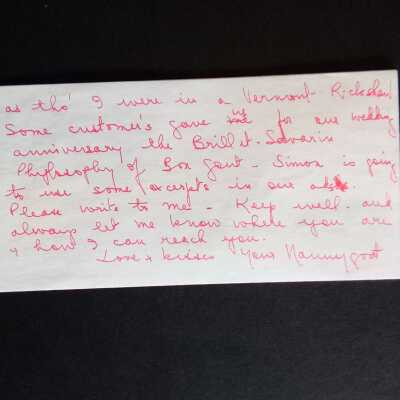 as tho' I were in a Vermont - Rickshaw!
Some customer's gave us for our wedding
anniversary the Brillat-Savarin
Philosophy of Bon Gout - Simon is going
to use some excerpts in our ads.
Please write to me - Keep well - and
always let me know where you are
+ how I can reach you.
Love + kisses Your Nannygoat